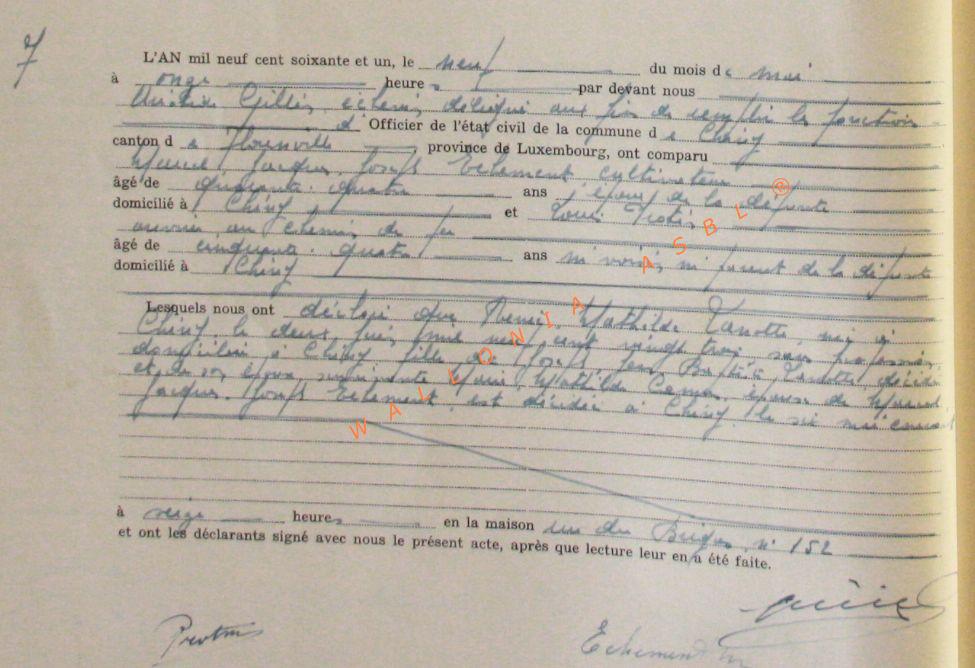 7
L'AN mil neuf cent soixante et un, le neuf du mois de mai
à onze heures par devant nous
Gillis, échevin délégué aux fins de remplir les fonctions
d' Officier de l'état civil de la commune de Chiny
canton de Florenville, province de Luxembourg, ont comparu
Marcel, Jacques, Joseph Echement, cultivateur
âgé de quarante-quatre ans, époux de la défunte
domicilié à Chiny et Louis
ouvrier au chemin de fer
âgé de cinquante-quatre ans ni voisin, ni parent de la défunte
domicilié à Chiny
Lesquels nous ont déclaré que Mathilde née à
Chiny, le deux juin mil neuf cent vingt trois, sans profession,
domiciliée à Chiny, fille de Joseph, Jean, Baptiste décédé
et de son épouse survivante Marie, Mathilde épouse de Marcel
Jacques, Joseph Echement, est décédée à Chiny, le six mai courant
à seize heures en la maison rue du n° 152
et ont les déclarants signé avec nous le présent acte, après que lecture leur en a été faite.
WALLONIA ASBL ®
Echement